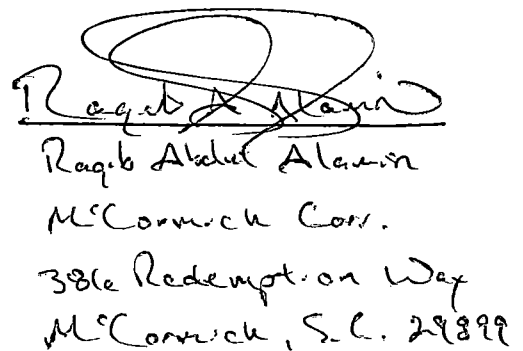 Raqib A Alamin
Raqib Abdul Alamin
McCormick Corr.
386 Redemption Way
McCormick, S.C. 29899